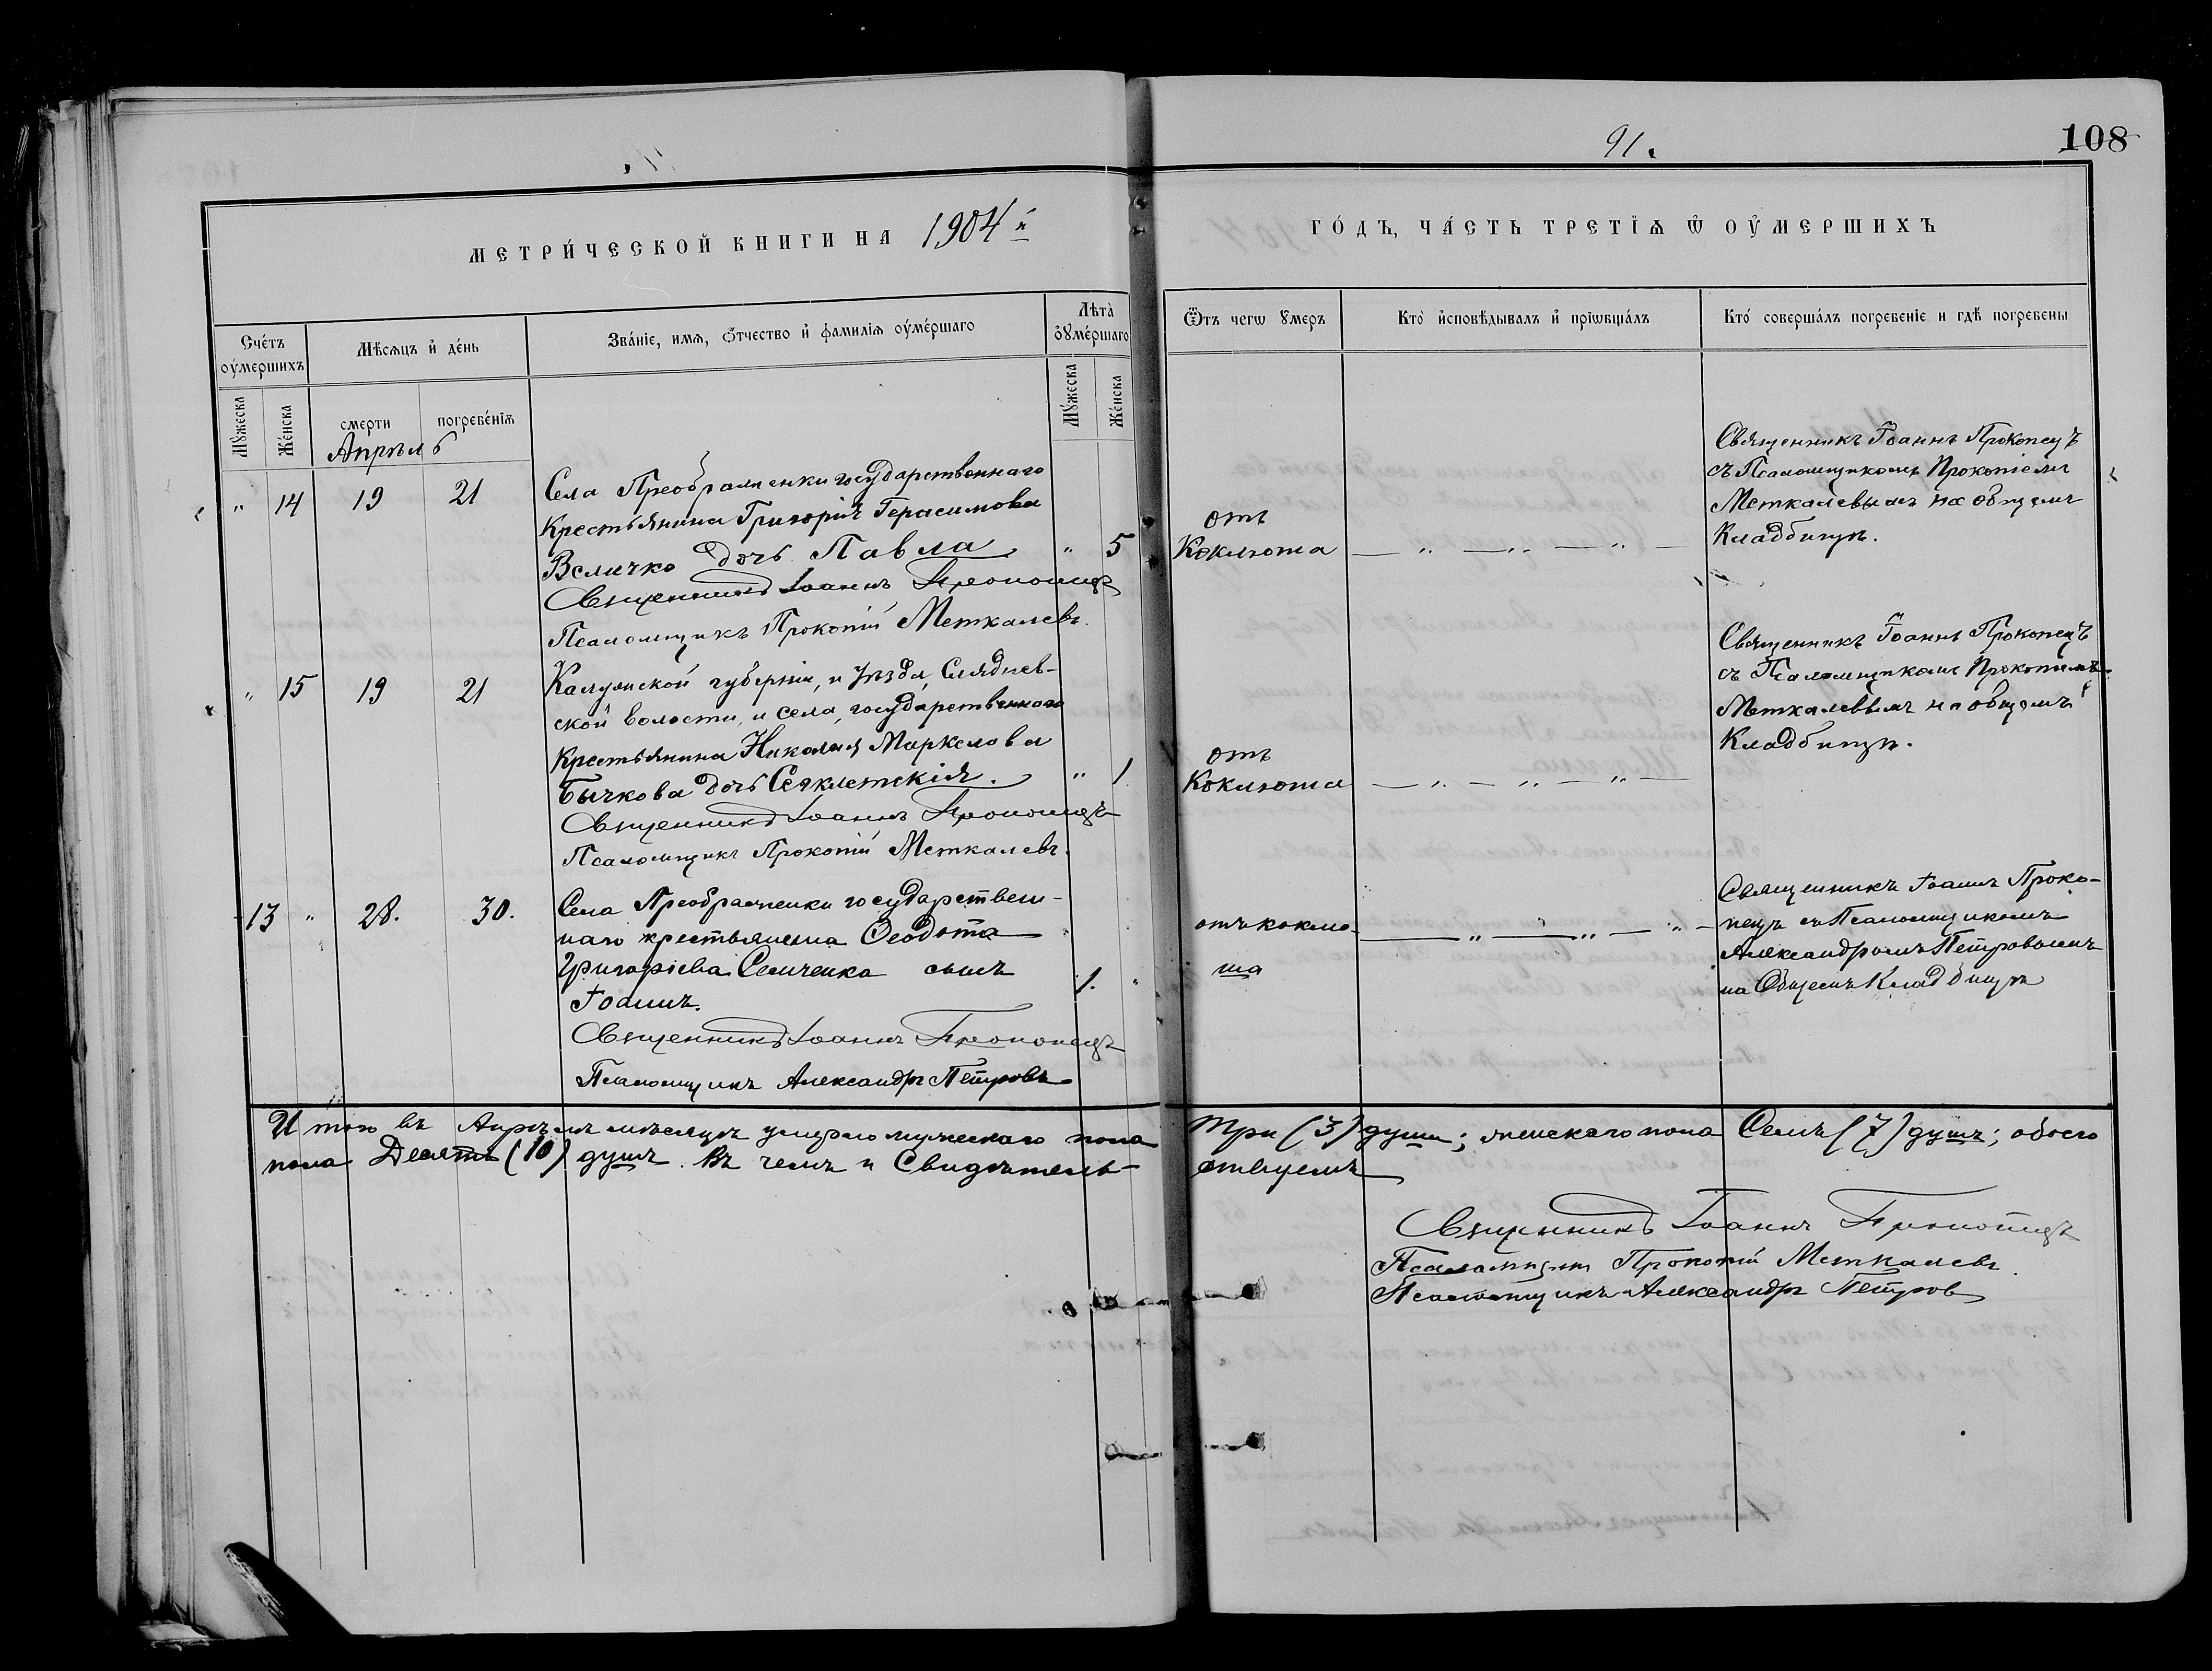 91.
108
МЕТРИ́ЧЕСКОЙ КНИГИ НА 1904 й
ГО́ДЪ, ЧА́СТЬ ТРЕТІѦ Ѡ ОУ҆МЕРШИХЪ
Сче́тъ оу҆́мершихъ
Мѣсяцъ и҆ де́нь
Зва́ніе, имѧ, ѻ҆́тчество и҆ фамилія оу҆ме́ршаго
Лѣта̀ оу҆ме́ршаго
Ѿтъ чегѡ ꙋмеръ
Кто̀ и҆сповѣ́дывалъ и҆ прїѡбща́лъ
Кто́ соверша́лъ погребе́ніе и гдѣ̀ погребены
Мꙋжеска
Же́нска
смерти
погребе́нія
Мꙋжеска
Же́нска
Апрѣль
" 14 19 21
Села Преображенки государственнаго
Крестьянина Григорія Герасимова
Величко дочь Павла " 5
Священникъ Іоаннъ Прокопецъ
Псаломщикъ Прокопій Меткалевъ.
отъ
Коклюша
Священникъ Іоаннъ Прокопецъ
съ Псаломщикомъ Прокопіемъ
Меткалевымъ на общемъ
Кладбищѣ.
" 15 19 21
Калужской губерніи, и уѣзда,
ской волости, и села, государственнаго
Крестьянина Николая Маркелова
Бычкова дочь " 1
Священникъ Іоаннъ Прокопецъ
Псаломщикъ Прокопій Меткалевъ.
отъ
Коклюша
Священникъ Іоаннъ Прокопецъ
съ Псаломщикомъ Прокопіемъ
Меткалевымъ на общемъ
Кладбищѣ.
13 " 28. 30.
Села Преображенки государствен-
наго крестьянина Ѳеодота
Григоріева Семченка сынъ 1. "
Іоаннъ.
Священникъ Іоаннъ Прокопецъ
Псаломщикъ Александръ Петровъ
отъ коклю-
ша
Священникъ Іоаннъ Проко-
пецъ съ Псаломщикомъ
Александромъ Петровымъ
на Общемъ Кладбищѣ
Итого въ Апрѣлѣ мѣсяцѣ умерло мужескаго пола Три (3) души; женскаго пола Семь (7) душъ; обоего
пола Десять (10) душъ. Въ чемъ и Свидѣтель-ствуемъ
Священникъ Іоаннъ Прокопецъ
Псаломщикъ Прокопій Меткалевъ.
Псаломщикъ Александръ Петров